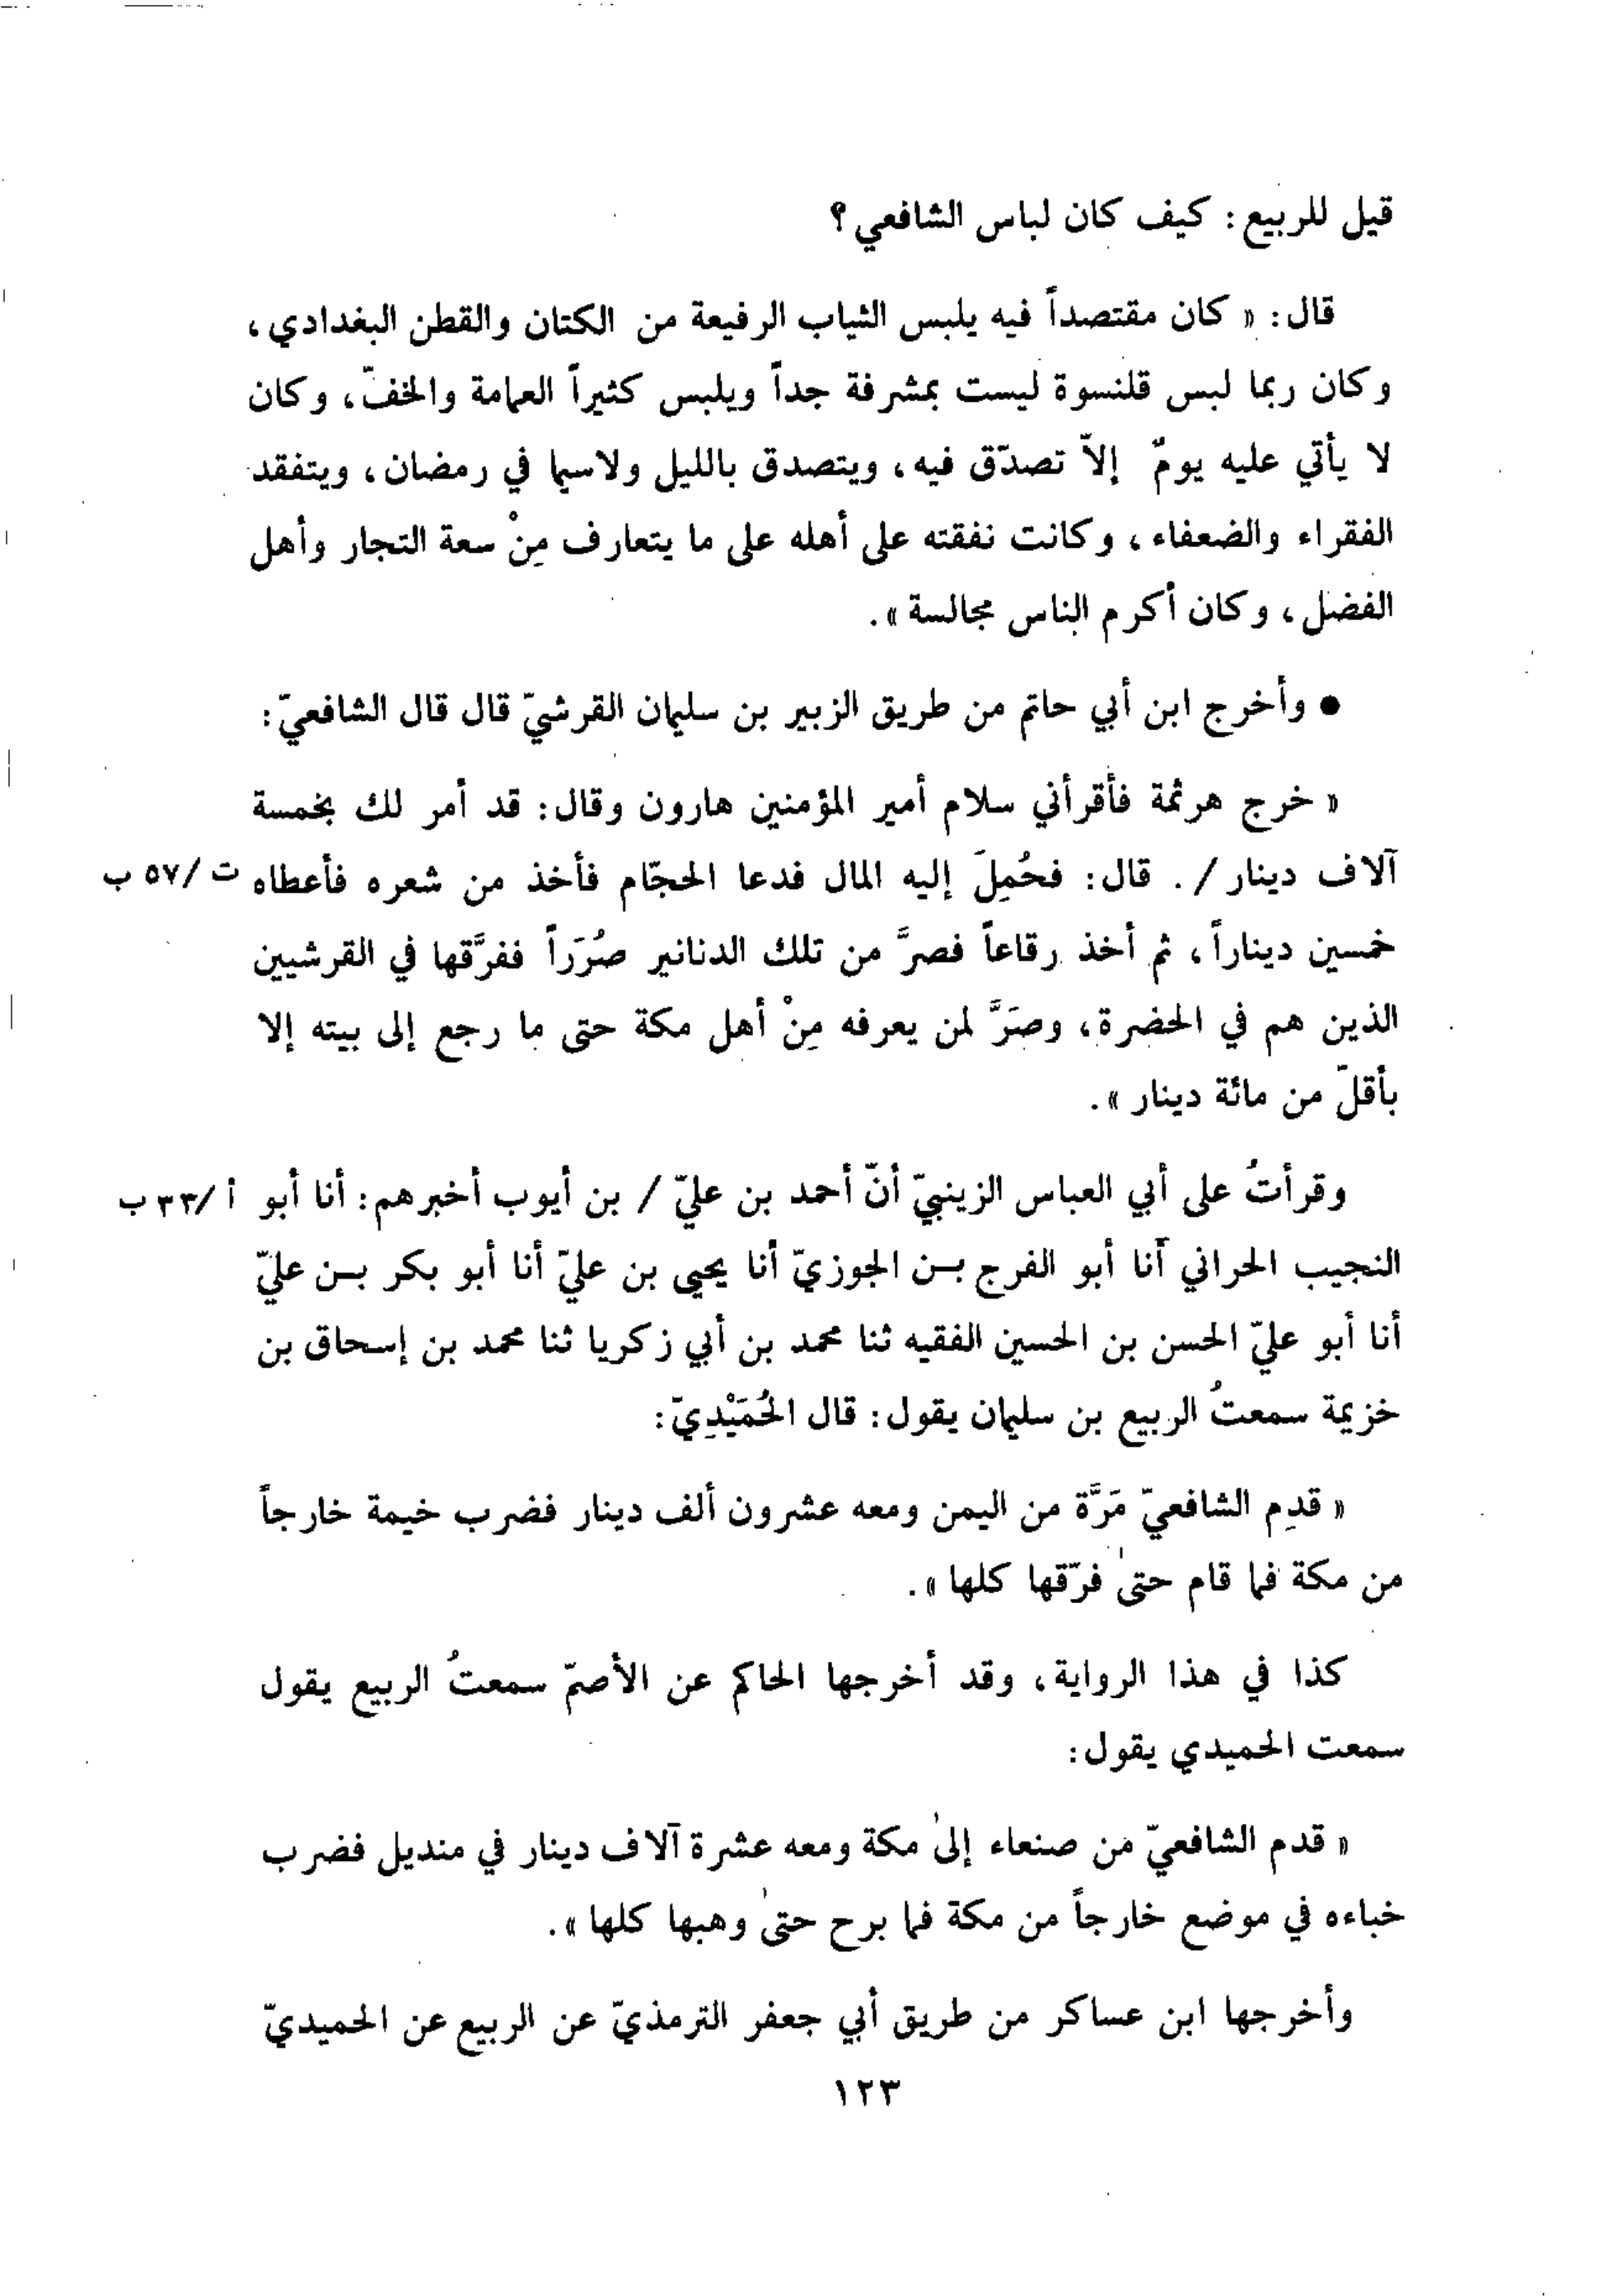 قيل للربيع : كيف كان لباس الشافعي ؟
قال : « كان مقتصداً فيه يلبس الثياب الرفيعة من الكتان والقطن البغدادي ،
وكان ربما لبس قلنسوة ليست بمشرفة جداً ويلبس كثيراً العمامة والخفّ ، وكان
لا يأتي عليه يومٌ إلاّ تصدّق فيه ، ويتصدق بالليل ولاسيما في رمضان ، ويتفقد
الفقراء والضعفاء ، وكانت نفقته على أهله على ما يتعارف مِنْ سعة التجار وأهل
الفضل ، وكان أكرم الناس مجالسة » .
● وأخرج ابن أبي حاتم من طريق الزبير بن سليمان القرشيّ قال قال الشافعيّ :
« خرج هرثمة فأقرأني سلام أمير المؤمنين هارون وقال : قد أمر لك بخمسة
آلاف دينار / . قال : فحُمِلَ إليه المال فدعا الحجّام فأخذ من شعره فأعطاه ت/٥٧ ب
خمسين ديناراً ، ثم أخذ رقاعاً فصرَّ من تلك الدنانير صُرَراً ففرَّقها في القرشيين
الذين هم في الحضرة ، وصَرَّ لمن يعرفه مِنْ أهل مكة حتى ما رجع إلى بيته إلا
بأقلّ من مائة دينار » .
وقرأتُ على أبي العباس الزينبيّ أنّ أحمد بن عليّ / بن أيوب أخبرهم : أنا أبو أ/٣٣ ب
النجيب الحراني أنا أبو الفرج بـن الجوزيّ أنا يحيى بن عليّ أنا أبو بكر بـن عليّ
أنا أبو عليّ الحسن بن الحسين الفقيه ثنا محمد بن أبي زكريا ثنا محمد بن إسحاق بن
خزيمة سمعتُ الربيع بن سليمان يقول : قال الحُمَيْدِيّ :
« قدِم الشافعيّ مَرَّة من اليمن ومعه عشرون ألف دينار فضرب خيمة خارجاً
من مكة فما قام حتىٰ فرّقها كلها » .
كذا في هذا الرواية ، وقد أخرجها الحاكم عن الأصمّ سمعتُ الربيع يقول
سمعت الحميدي يقول :
« قدم الشافعيّ من صنعاء إلىٰ مكة ومعه عشرة آلاف دينار في منديل فضرب
خباءه في موضع خارجاً من مكة فما برح حتىٰ وهبها كلها » .
وأخرجها ابن عساكر من طريق أبي جعفر الترمذيّ عن الربيع عن الحميديّ
١٢٣